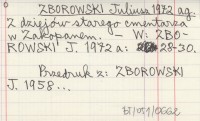 ZBOROWSKI Juliusz 1972 ag.
Z dziejów starego cmentarza
w Zakopanem. — W: ZBO-
ROWSKI J. 1972 a: 28-30.
Przedruk z: ZBOROWSKI
J. 1958...